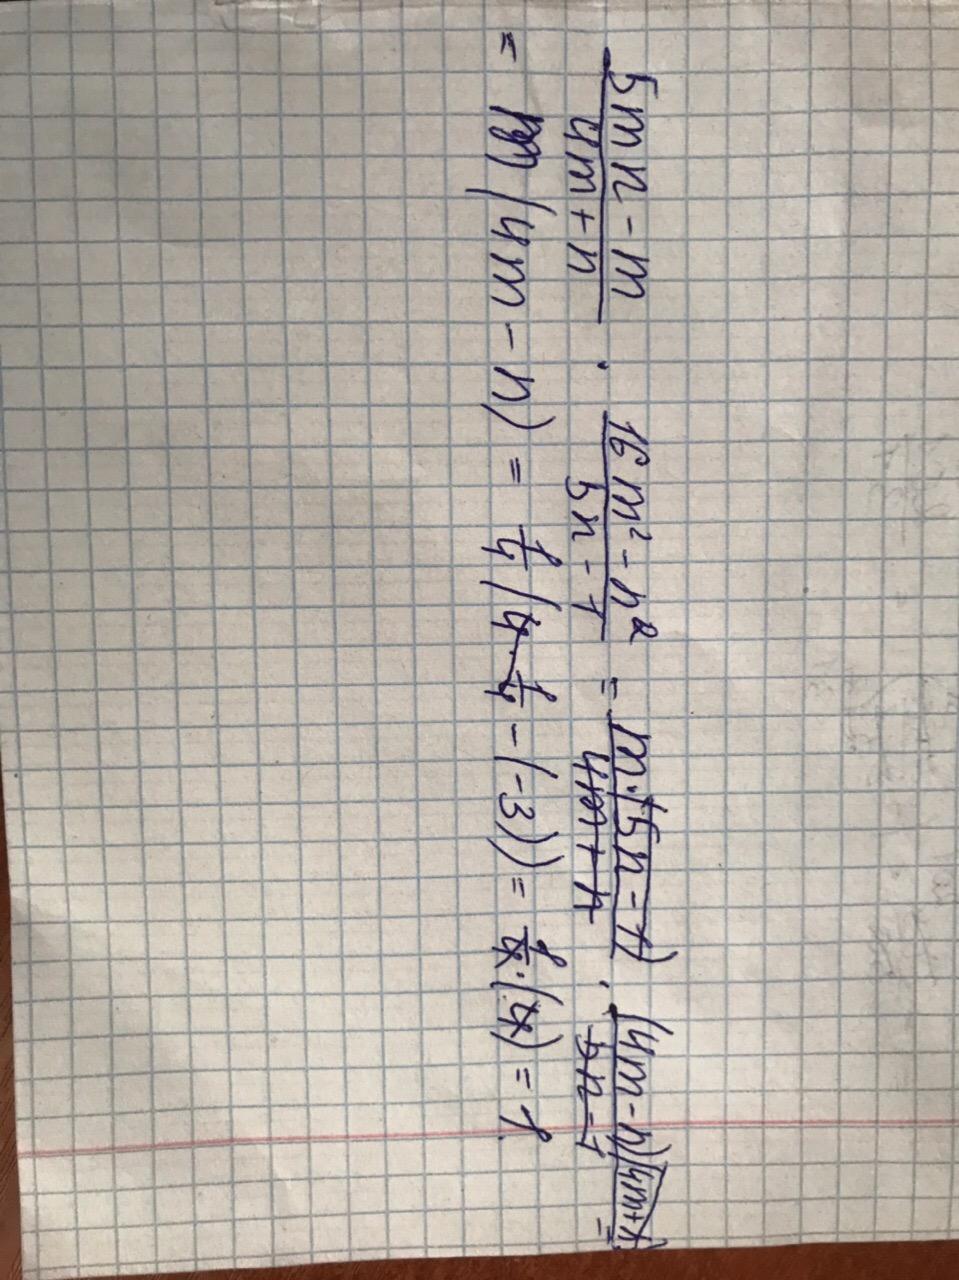 (5mn - m)/(4m + n) · (16m² - n²)/(5n - 1) = (m·(5n - 1))/(4m + n) · ((4m - n)(4m + n))/(5n - 1) =
= m(4m - n) = 1/4(4·1/4 - (-3)) = 1/4·(4) = 1.